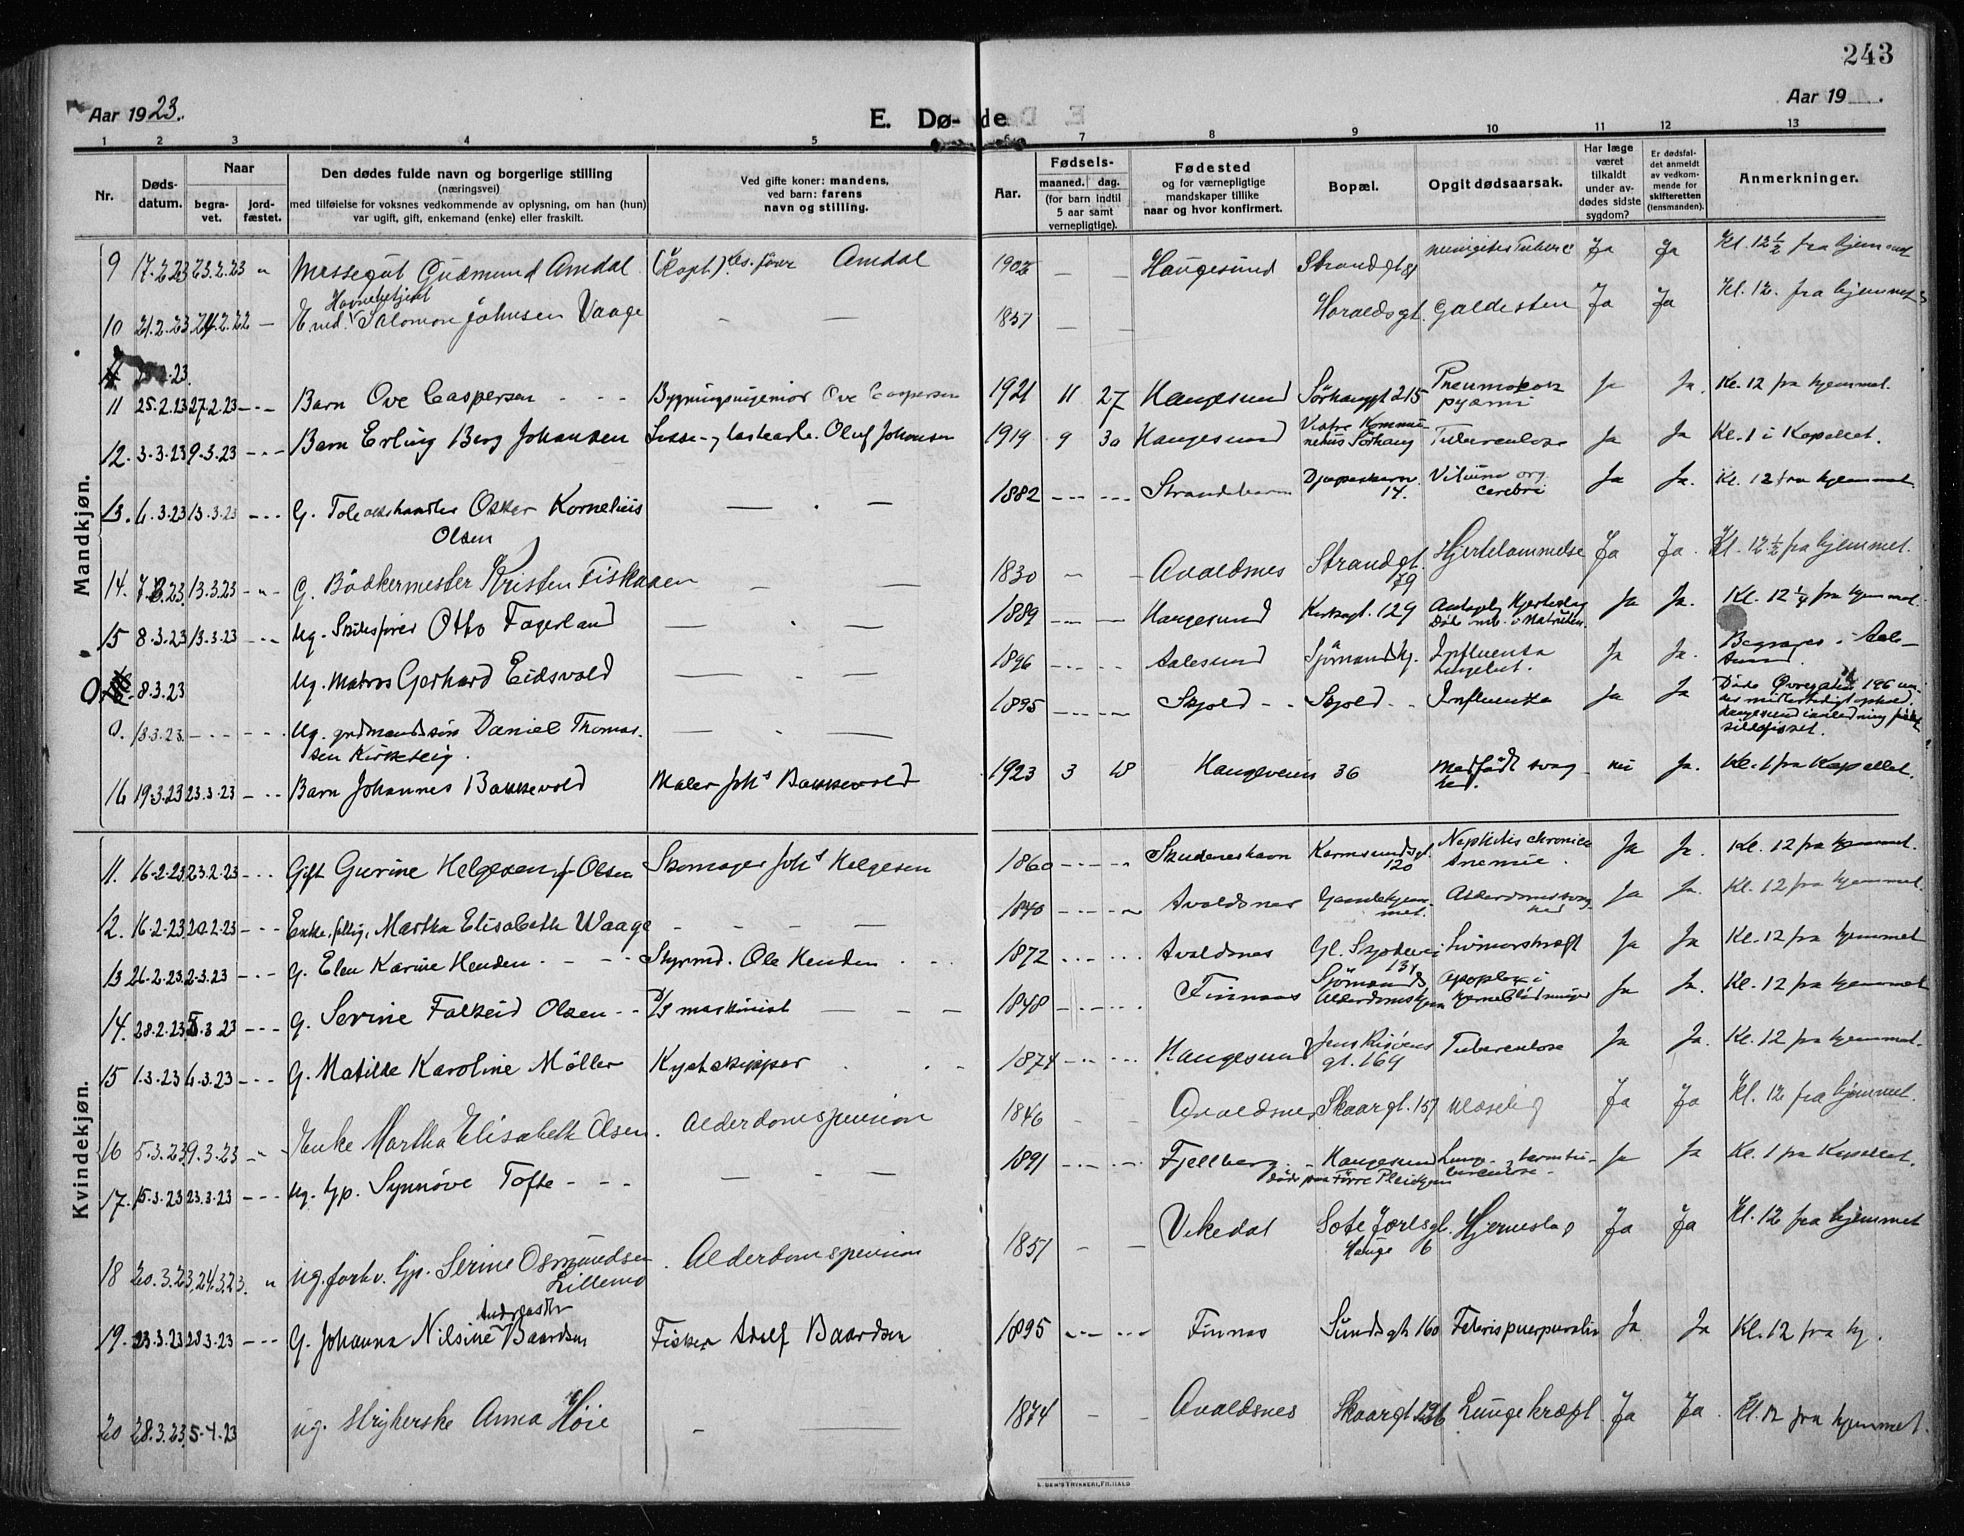 243
Aar 1923.
E. Dø- de
Aar 19
1 2 3 4 5 6 7 8 9 10 11 12 13
Nr.
Døds-
datum.
Naar
begra-
vet.
jord-
fæstet.
Den dødes fulde navn og borgerlige stilling
(næringsvei)
med tilføielse for voksnes vedkommende av oplysning, om han (hun)
var ugift, gift, enkemand (enke) eller fraskilt.
Ved gifte koner: mandens,
ved barn: farens
navn og stilling.
Aar.
Fødsels-
maaned. dag.
(for barn indtil
5 aar samt
vernepligtige).
Fødested
og for værnepligtige
mandskaper tillike
naar og hvor konfirmert.
Bopæl.
Opgit dødsaarsak.
Har læge
været
tilkaldt
under av-
dødes sidste
sygdom?
Er dødsfal-
det anmeldt
av vedkom-
mende for
skifteretten
(lensmanden).
Anmerkninger.
Mandkjøn.
9 17.2.23 23.2.23 " Messegut Gudmund Amdal (Kapt.) Amdal 1902 — — Haugesund Strandgt Ja Ja Kl. 12½ fra hjemmet
Havnebetjent
10 21.2.23 24.2.22 — Enkd. Salomon Johnsen Vaage — — 1837 — — Haraldsgt. Galdesten Ja Ja Kl. 12. fra hjemmet
11 25.2.23 27.2.23 - - - Barn Ove Caspersen - - - Bygningsingeniør Ove Caspersen 1921 11 27 Haugesund Sørhauggt 215 Ja Ja. Kl. 12 fra hjemmet.
12. 3.3.23 9.3.23 - - - Barn Erling Berg Johansen Olaf Johansen 1919 9 30 Haugesund Tuberculose Ja Ja Kl. 1 i Kapellet.
13. 6.3.23 13.3.23 - - - G. Oskar Kornelius
Olsen — . — 1882 --- --- 14. Vitium org.
cerebri Ja Ja. Kl. 12 fra hjemmet
14. 7.3.23 13.3.23 - " - G. Bödkermester Kristen Fiskaaen — — 1830 — — Avaldsnes Strandgt.
79 Hjertelammelse Ja Ja. Kl. 12½ fra hjemmet.
15 8.3.23 13.3.23 - - - Ug. Skibsfører Otto Fagerland — . — 1889 — — Haugesund Kirkegt. 129 Ja Ja. Kl. 12¼ fra hjemmet.
0. 8.3.23 Ug. Matros Gerhard Eidsvold — . — 1896 --- --- Aalesund Sjømandshj. Influensa Ja Ja. Begraves i Aale-
sund.
0. 18.3.23 - - - Ug. gardmandssön Daniel Thomas-
sen Kirketeig. — . — 1895 --- --- Skjold - - Skjold - - Influensa Ja Ja Døde Øvregaten 196
16 19.3.23 23.3.23 - - - Barn Johannes Bakkevold Maler Johs Bakkevold 1923 3 18 Haugeveien 36 Medfødt svag
hed. nei Ja. Kl. 1 fra Kapellet.
Kvindekjøn.
11. 16.2.23 23.2.23 - - - Gift Gurine Helgesen f. Olsen Skomager Johs Helgesen 1860 --- --- Skudeneshavn Karmsundsgt.
120 Nephritis chronica
Anemie. Ja Ja. Kl. 12 fra hjemmet.
12. 16.2.23 20.2.23 - - - Enke, Martha Elisabeth Waage - - - 1840 --- --- Avaldsnes Gamlehjem-
met. Alderdomssvag
hed Ja Ja. Kl. 12 fra hjemmet.
13 26.2.23 2.3.23 - - - G. Elen Karine Henden - - - Styrmd. Ole Henden . . . 1872 --- --- Avaldsnes Livmorskræft Ja Ja Kl. 12 fra hjemmet
14. 28.2.23 5.3.23 - - - G. Serine Falkeid Olsen - - D/S maskinist — — — 1848 --- --- Finnaas Sjömands
Alderdomshjem Apoplexi
hjerneblødninger Ja Ja. Kl. 12 fra hjemmet
15 1.3.23 6.3.23 - - - G. Matilde Karoline Møller Kystskipper . . - 1874 --- --- Haugesund
gt. 169 Tuberculose Ja Ja. Kl. 12 fra hjemmet.
16 5.3.23 9.3.23 " Enke Martha Elisabeth Olsen . Alderdomspension 1846 — — Avaldsnes Skaargt. 157 Ja Ja Kl. 12 fra hjemmet.
17. 15.3.23 23.3.23 - - - Ug. Gp. Synnøve Tofte - - - — - - 1891 --- --- Fjellberg - Haugesund Ja Ja Kl. 1 fra Kapellet.
18 20.3.23 24.3.23. " Ug. forhv. Gp. Serine Osmundsen
Lillemo . Alderdomspension 1851 — — Vikedal Sote Jarlsgt.
Hauge 6 Hjerneslag Ja Ja Kl. 12 fra hjemmet
Andreasdtr
19. 23.3.23 28.3.23 - - - G. Johanna Nilsine Baardsen Fisker Adolf Baardsen 1895 --- --- Finnas Sundsgt. 160 Febris puerperalis Ja. Ja Kl. 12 fra hj.
20 28.3.23 5.4.23 ug. Strykerske Anna Høie — — 1874 — — Avaldsnes Skaargt. 126 Lungekræft. Ja Ja. Kl. 12 fra hjemmet.